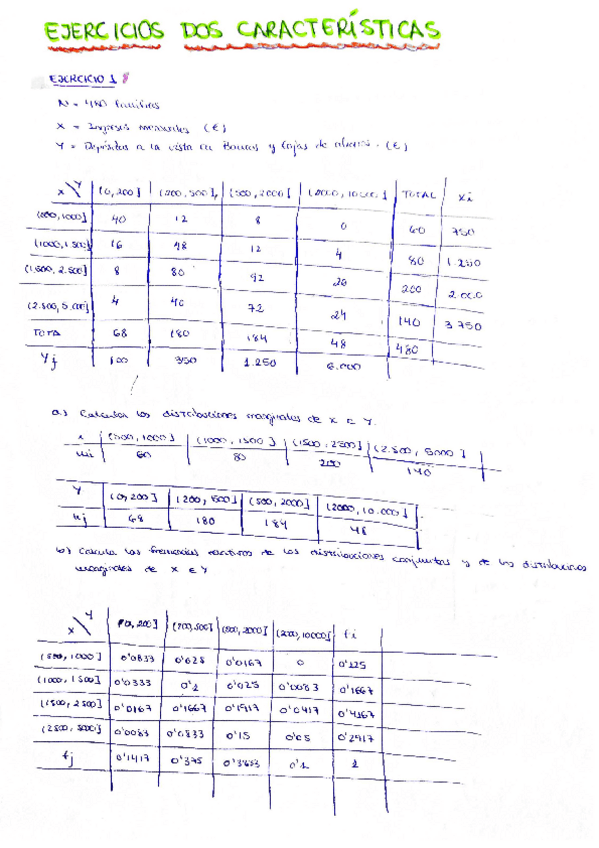 EJERCICIOS DOS CARACTERÍSTICAS
EJERCICIO 1
N = 480 familias
X = Ingresos mensuales (€)
Y = Depósitos a la vista en Bancos y Cajas de ahorros. (€)
X Y (0,200] (200,500] (500,2000] (2000,10.000] TOTAL Xi
(500,1000] 40 12 8 0 60 750
(1000,1500] 16 48 12 4 80 1.250
(1.500, 2.500] 8 80 92 20 200 2.000
(2.500, 5.000] 4 40 72 24 140 3.750
TOTA 68 180 184 48 480
Yj 100 350 1.250 6.000
a) Calcular las distribuciones marginales de X e Y.
(500,1000] (1000,1500] (1500,2500] (2.500, 5000]
ni 60 80 200 140
Y (0,200] (200,500] (500,2000] (2000,10.000]
nj 68 180 184 48
b) Calcula las frecuencias relativas de las distribuciones conjuntas y de las distribuciones
marginales de X e Y
X Y (0,200] (200,500] (500,2000] (200,10000] fi
(500,1000] 0'0833 0'025 0'0167 0 0'125
(1000,1500] 0'0333 0'1 0'025 0'0083 0'1667
(1500, 2500] 0'0167 0'1667 0'1917 0'0417 0'4167
(2500, 5000] 0'0083 0'0833 0'15 0'05 0'2917
fj 0'1417 0'375 0'3833 0'1 1